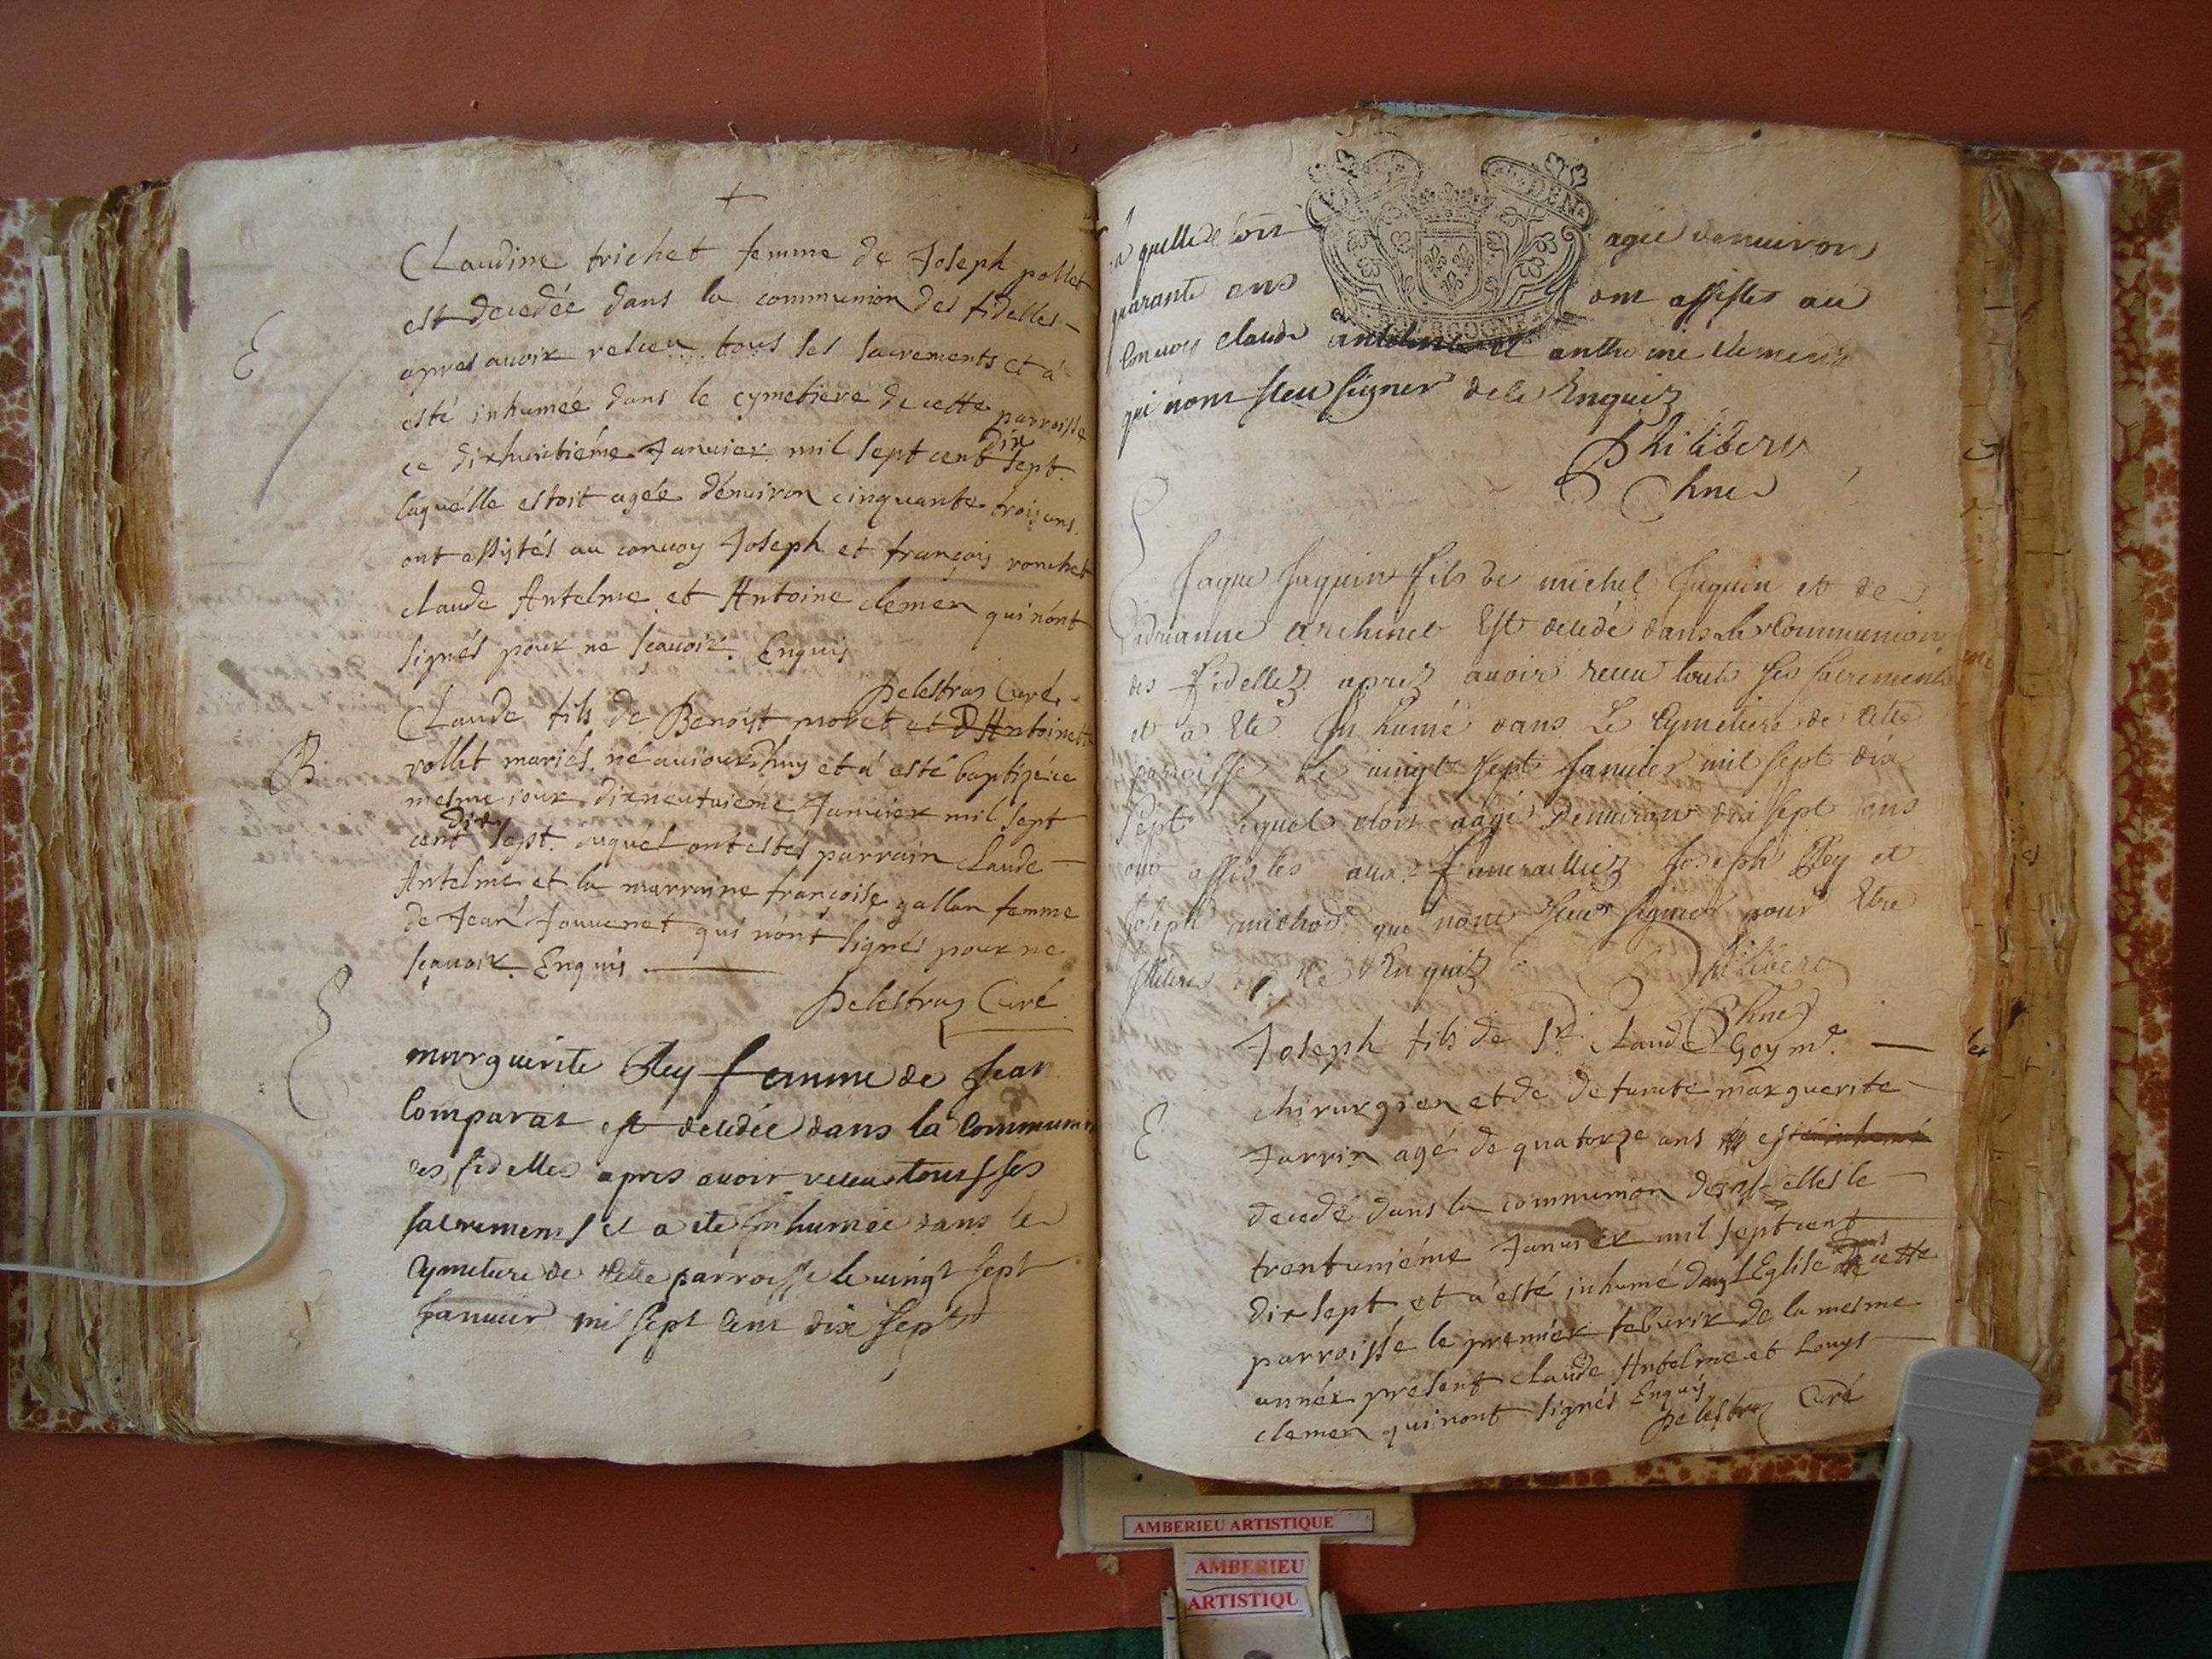 Claudine trichet femme de Joseph pollet
est decedée dans la communion des fidelles
E
apres auoir receu tous ses sacrements et a
esté inhumée dans le cymetiere de cette parroisse
ce dixhuitiéme Januier mil sept cent dix sept.
laquélle estoit agée d'enuiron cinquante trois ans.
ont assistés au conuoy Joseph et françois ronchet
claude Antelme et Antoine clemen qui n'ont
signés pour ne scauoir. Enquis
Delestraz Curé.
Claude fils de Benoist et D'Antoinette
B
vollet mariés. né auiourdhuy et a esté baptizé ce
mesme iour dixneufuiéme Januier mil sept
cent dix sept. auquel ont estés parrain Claude
Antelme et la marraine françoise gallan femme
de Jean Jouuenet qui n'ont signés pour ne
scauoir. Enquis.
Delestraz Curé
marguerite Rey femme de Jean
Comparat est decedée dans la Communion
des fidelles apres auoir receu tous ses
sacremens et a ete Inhumée dans le
Cymetiere de cette parroisse le uingt sept
Januier mil sept cent dix sept
la quelle etoit agée denuiron
quarante ans ont assistes au
Conuois claude antelme et anthoine clement
qui nont sceu signer de ce Enquis
Philibert
Jaque Jaquin fils de michel Jaquin et de
archinet Est decedé dans la Communion
des fidelles apres auoir receu tout ses sacrements
et a Eté In humé dans Le Cymetiere de cette
parroisse Le uingt sept Januier mil sept dix
sept lequel etoit aagé denuiron dix sept ans
ont assistes aux funerailles Joseph Rey et
Joseph michod que nont sceu signer pour Etre
de Enquis
Philibert
Joseph fils de Sr. Claude Goy me.
chirurgien et de defunte marguerite
E
Jarrin agé de quatorze ans est
decedé dans la communion des fidelles le
trentuniéme Januier mil sept cent
dix sept et a esté inhumé dans l'Eglise de cette
parroisse le premier feburir de la mesme
année present claude Antelme et Louys
clemen qui n'ont signés Enquis
Delestraz Curé
AMBERIEU ARTISTIQUE
AMBERIEU
ARTISTIQU